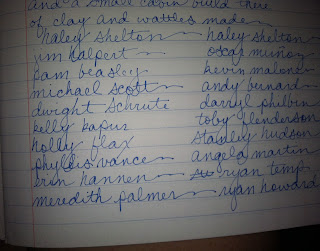 and a small cabin build there
of clay and wattles made
haley shelton haley shelton
jim halpert oscar munoz
pam beasley kevin malone
michael scott andy bernard
dwight schrute darryl philbin
kelly kapur toby flenderson
holly flax stanley hudson
phyllis vance angela martin
erin hannen ryan temp
meredith palmer ryan howard